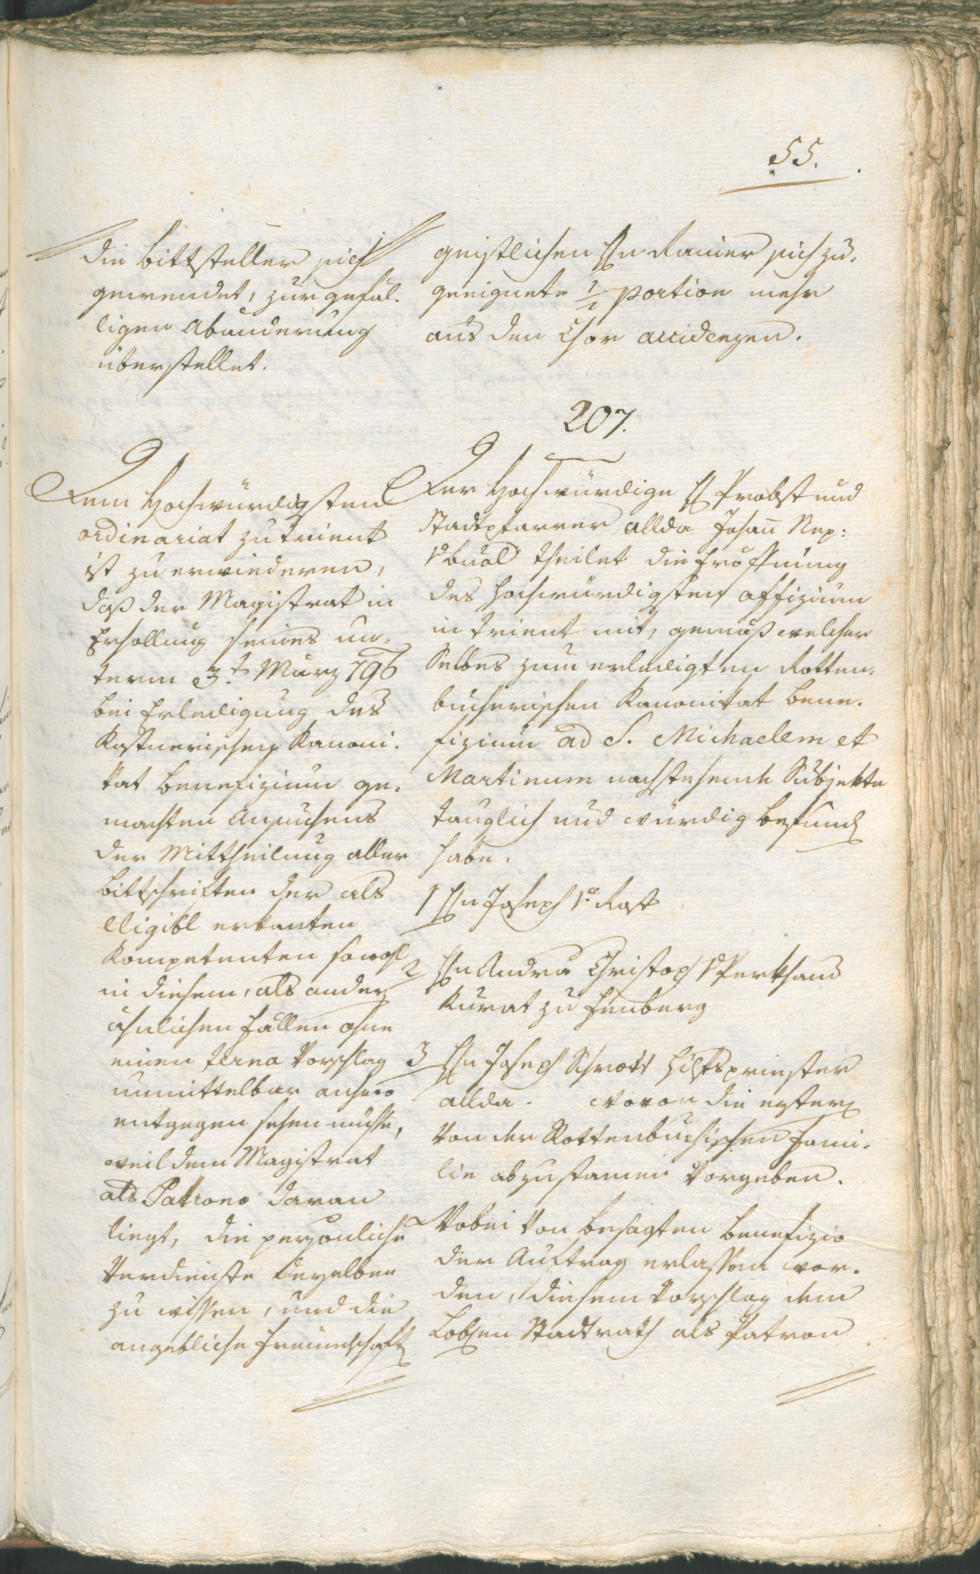 55.
die Bittsteller sich
gewendet, zur gefäl-
ligen Abänderung
überstellet.
geistlichen Hn Rainer sich zu-
geeignete 1/2 portion mehr
aus den Chor accidenzen.
207.
Dem Hochwürdigsten
ordinariat zu Trient
ist zu erwiederen,
daß der Magistrat in
Erhollung seines un-
term 3t März 796
bei Erledigung des
Kastnerischen Kanoni-
kat Benefizium ge-
machten Ansuchens
der Mittheilung aller
Bittschriften der als
Eligibl erkanten
Kompetenten sowohl
in diesem, als ander
ähnlichen Fällen ohne
einen terna Vorschlag
unmittelbar anhero
entgegen sehen müsse,
weil dem Magistrat
als Patrono daran
liegt, die persönliche
Verdienste derselben
zu wissen, und die
angebliche Freundschaft
Der Hochwürdige H Probst und
Stadtpfarrer allda Johan Nep:
v Buol theilet die Eröffnung
des hochwürdigsten offizium
in Trient mit, gemäß welcher
Selbes zum erledigten Rotten-
bucherischen Kanonikat Bene-
fizium ad S. Michaelem et
Martinum nachstehende Subjekte
tauglich und würdig befunden
habe.
1 Hn Joseph v Rost
2 Hn Andrä Christoph v
Kurat zu Enberg
3 Hn Joseph Schrott Hilfspriester
allda. wovon die erstern
von der Rottenbuchischen Fami-
lie abzustamen vorgeben.
Wobei von besagten Benefizio
der Auftrag erlassen wor-
den, diesem Vorschlag dem
Lobsen Stadtrath als Patron